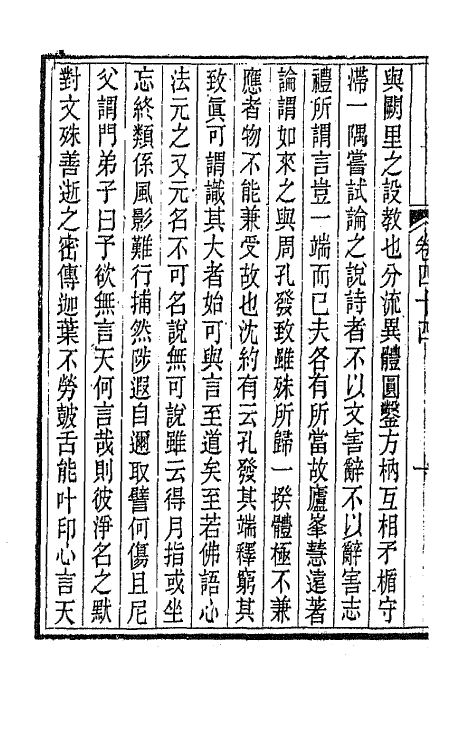 卷四十四
與闕里之設教也分流異體圓鑿方枘互相矛楯守
滯一隅嘗試論之說詩者不以文害辭不以辭害志
禮所謂言豈一端而已夫各有所當故廬峯慧遠著
論謂如來之與周孔發致雖殊所歸一揆體極不兼
應者物不能兼受故也沈約有云孔發其端釋窮其
致眞可謂識其大者始可與言至道矣至若佛語心
法元之又元名不可名說無可說雖云得月指或坐
忘終類係風影難行捕然陟遐自邇取譬何傷且尼
父謂門弟子曰予欲無言天何言哉則彼淨名之默
對文殊善逝之密傳迦葉不勞皷舌能叶印心言天